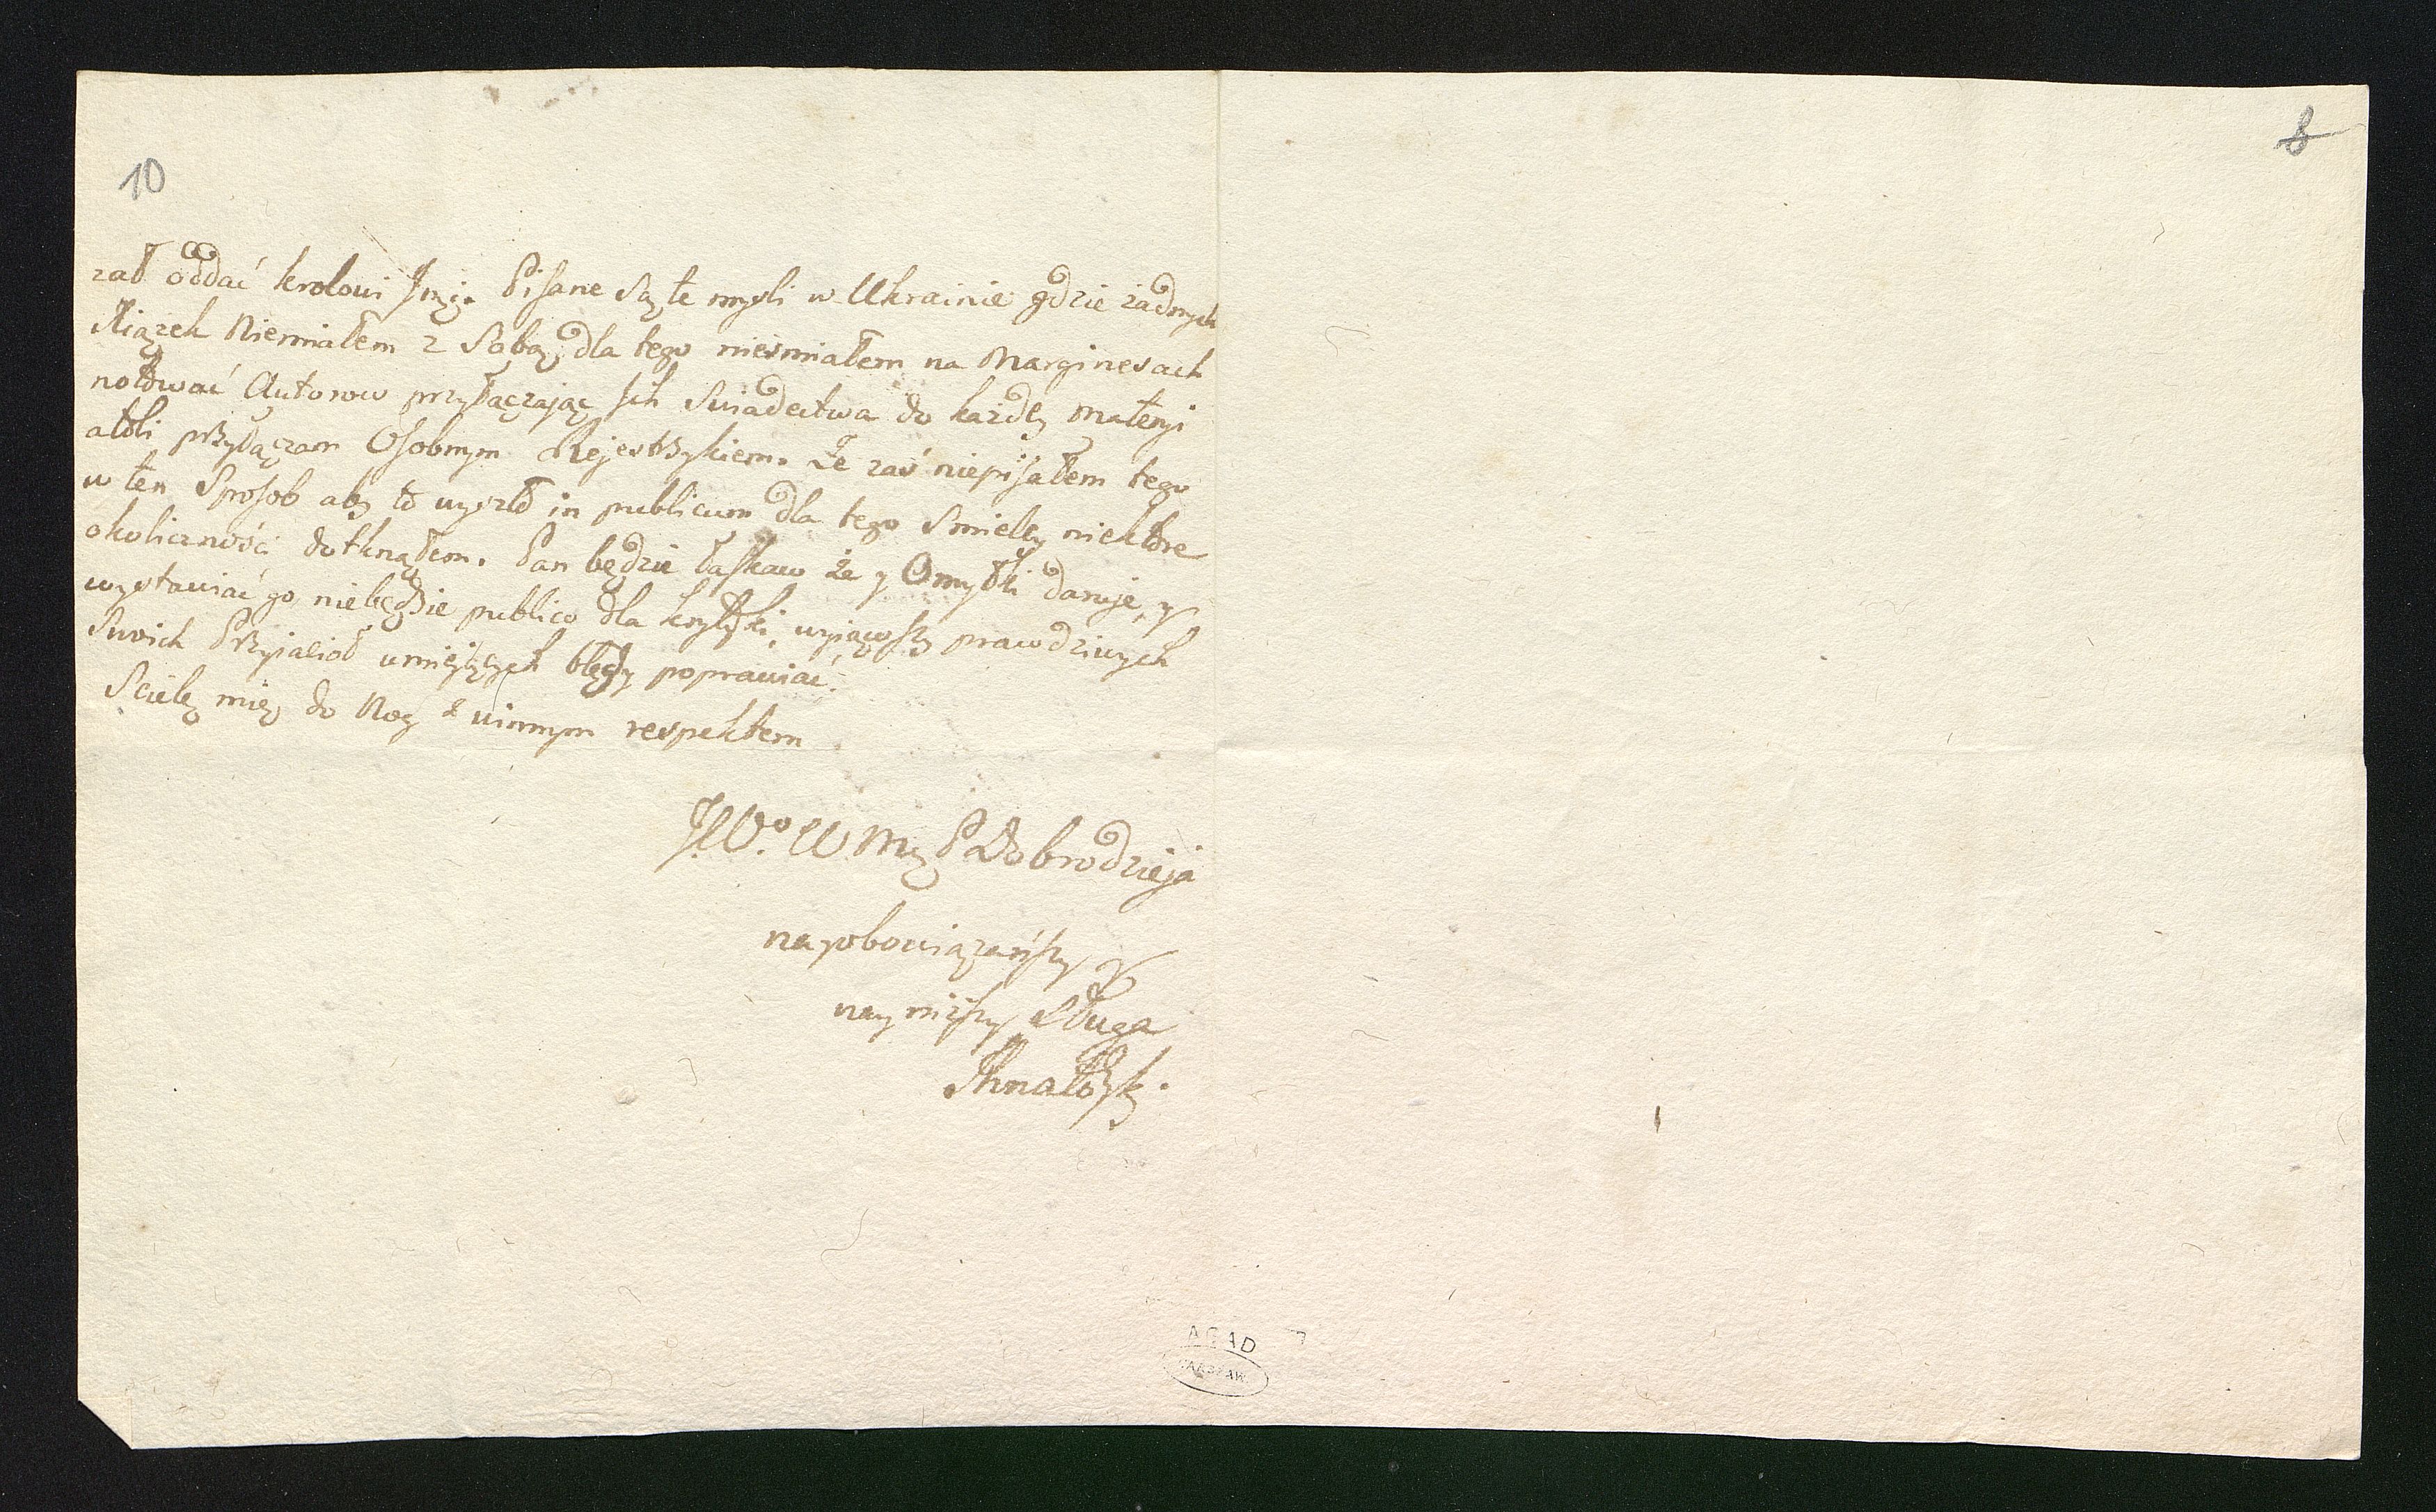 10
8
zał oddać krolowi Jmci. Pisane są te mysli w Ukrainie gdzie żadnych
xiążek Niemiałem z Sobą, dla tego nieśmiałem na Marginesach
notować Autorow przyłączając ich Swiadectwa do każdey materyi
atoli przyłączam Osobnym Rejestrzykiem. Że zaś niepisałem tego
w ten Sposob aby to wyszło in publicum dla tego Smieley niektore
okoliczności dotknąłem. Pan będzie łaskaw że y Omyłki daruje, y
wystawiać go niebędzie publico dla krytyki, wyiąwszy prawdziwych
Swoich Przyiacioł umiejących błędy poprawiać.
Scielę mię do Nog z winnym respektem
JW.o W M P Dobrodzieja
nayobowiązańszy y
nayniższy Sługa
AGAD